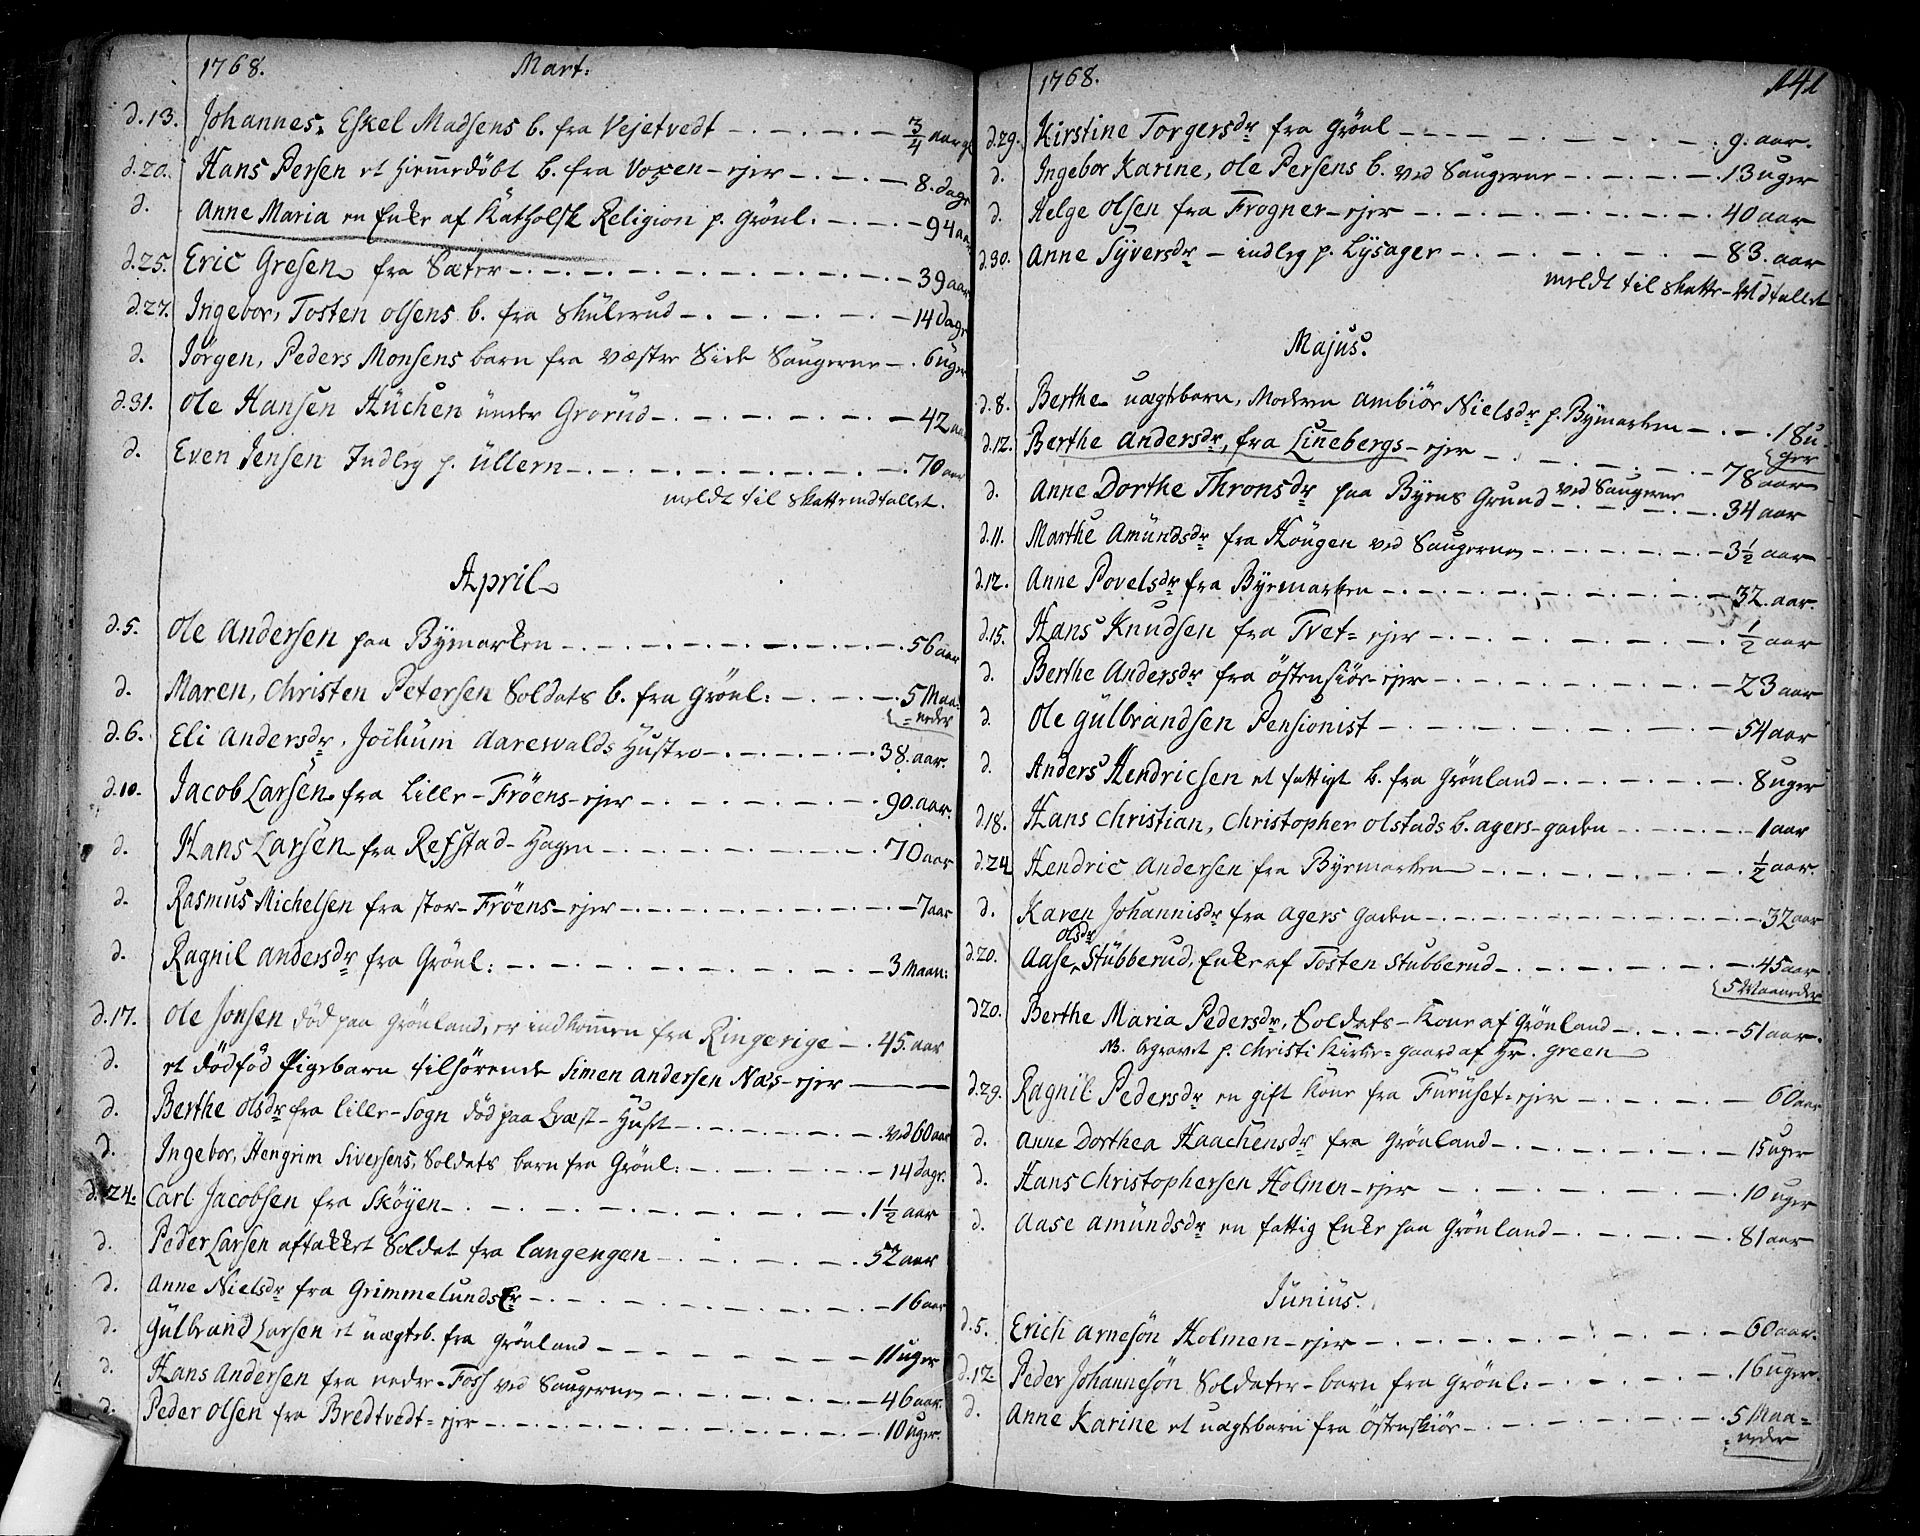 1768. Mart:
d.13. Johannes, Eskel Madsens b. fra Vejetvedt — 3/4 aar gl
d.20. Hans Persen et hiemmedöbt b. fra Voxen-ejer — 8. dage
d. Anne Maria en Enke af Katholsk Religion p. Grönl: — 94 aar
d.25. Eric Gresen fra Sæter — 39 aar
d.27. Ingebor, Tosten Olsens b. fra Skulerud — 14 dage
d. Jörgen, Peders Monsens barn fra væstre Side Saugerne — 6 uger
d.31. Ole Hansen Küchen under Grorüd — 42 aar
d. Even Jensen Indleg p. Üllern — 70 aar
meldt til Skattemdtallet.
April
d.5. Ole Andersen paa Bÿmarken — 56 aar
d. Maren, Christen Petersen Soldats b. fra Grönl: — 5 Maa-
neder
d.6. Eli Andersdr, Jochum Aarewalds Hustro — 38. aar.
d.10. Jacob Larsen fra Lille-Fröens-ejer — 90. aar.
d. Hans Larsen fra Refstad-Hagen — 70 aar
d. Rasmus Michelsen fra stor-Fröens-ejer — 7 aar
d. Ragnil Andersdr fra Grönl: — 3 Maan:
d.17. Ole Jonsen död paa Grönland, er indkommen fra Ringerige — 45. aar
d. et dödföd Pigebarn tilhörende Simen Andersen Næs-ejer —
d. Berthe Olsdr fra Lille-Sogn död paa Qvæst-Huset — ved 60 aar
d. Ingebor, Hengrim Siversens, Soldats barn fra Grönl: — 14 dage.
d.24. Carl Jacobsen fra Sköyen — 1 1/2 aar
d. Peder Larsen aftakket Soldat fra Langengen — 52 aar
d. Anne Nielsdr fra Grimmelunds Er — 16 aar
d. Gulbrand Larsen et uægteb. fra Grönland — 11 uger
d. Hans Andersen fra nedre-Foss ved Saugerne — 46 aar
d. Peder Olsen fra Bredtvedt-ejer — 10 uger.
1768. 141
d.29. Kirstine Torgersdr fra Grönl — 9. aar.
d. Ingebor Karine, Ole Persens b. ved Saugerne — 13 uger
d. Helge Olsen fra Frogner-ejer — 40 aar
d.30. Anne Syversdr — indleg p. Lysager — 83. aar
meldt til Skatte-Mdtallet
Majus.
d.8. Berthe uægtebarn, Moderen Ambiör Nielsdr p. Bÿmarken — 18 u-
ger
d.12. Berthe Andersdr, fra Linnebergs-ejer — 78 aar
d. Anne Dorthe Thronsdr paa Bÿens Grund ved Saugerne — 34 aar
d.11. Marthe Amundsdr fra Hougen ved Saugerne — 3 1/2 aar
d.12. Anne Povelsdr fra Bÿemarken — 32. aar.
d.15. Hans Knudsen fra Tvet-ejer — 1/2 aar
d. Berthe Andersdr fra Östensiöe-ejer — 23 aar
d. Ole Gülbrandsen Pensionist — 54 aar
d. Anders Hendricsen et fattigt b. fra Grönland — 8 uger
d.18. Hans Christian, Christopher Olstads b. Agers-gaden — 1 aar
d.24. Hendric Andersen fra Bÿemarken — 1/2 aar.
d. Karen Johannisdr fra Agers gaden — 32 aar
d.20. Aase Olsdr Stübberud, Enke af Tosten Stubberud — 45 aar
5 Maaneder
d20. Berthe Maria Pedersdr, Soldats-Kone af Grönland — 51 aar.
NB. begravet p. Christi Kirke-gaard af Hr. Green
d.29. Ragnil Pedersdr en gift Kone fra Füruset-ejer — 60 aar
d. Anne Dorthea Haachensdr fra Grönland — 15 uger
d. Hans Christophersen Holmen-ejer — 10 uger
d. Aase Amundsdr en fattig Enke paa Grönland — 81 aar
Junius.
d.5. Erich Arnesön Holmen-ejer — 60 aar.
d.12. Peder Johannesön Soldater-barn fra Grönl: — 16 uger.
d. Anne Karine et uægtebarn fra Östenskiöe — 5 Maa-
neder